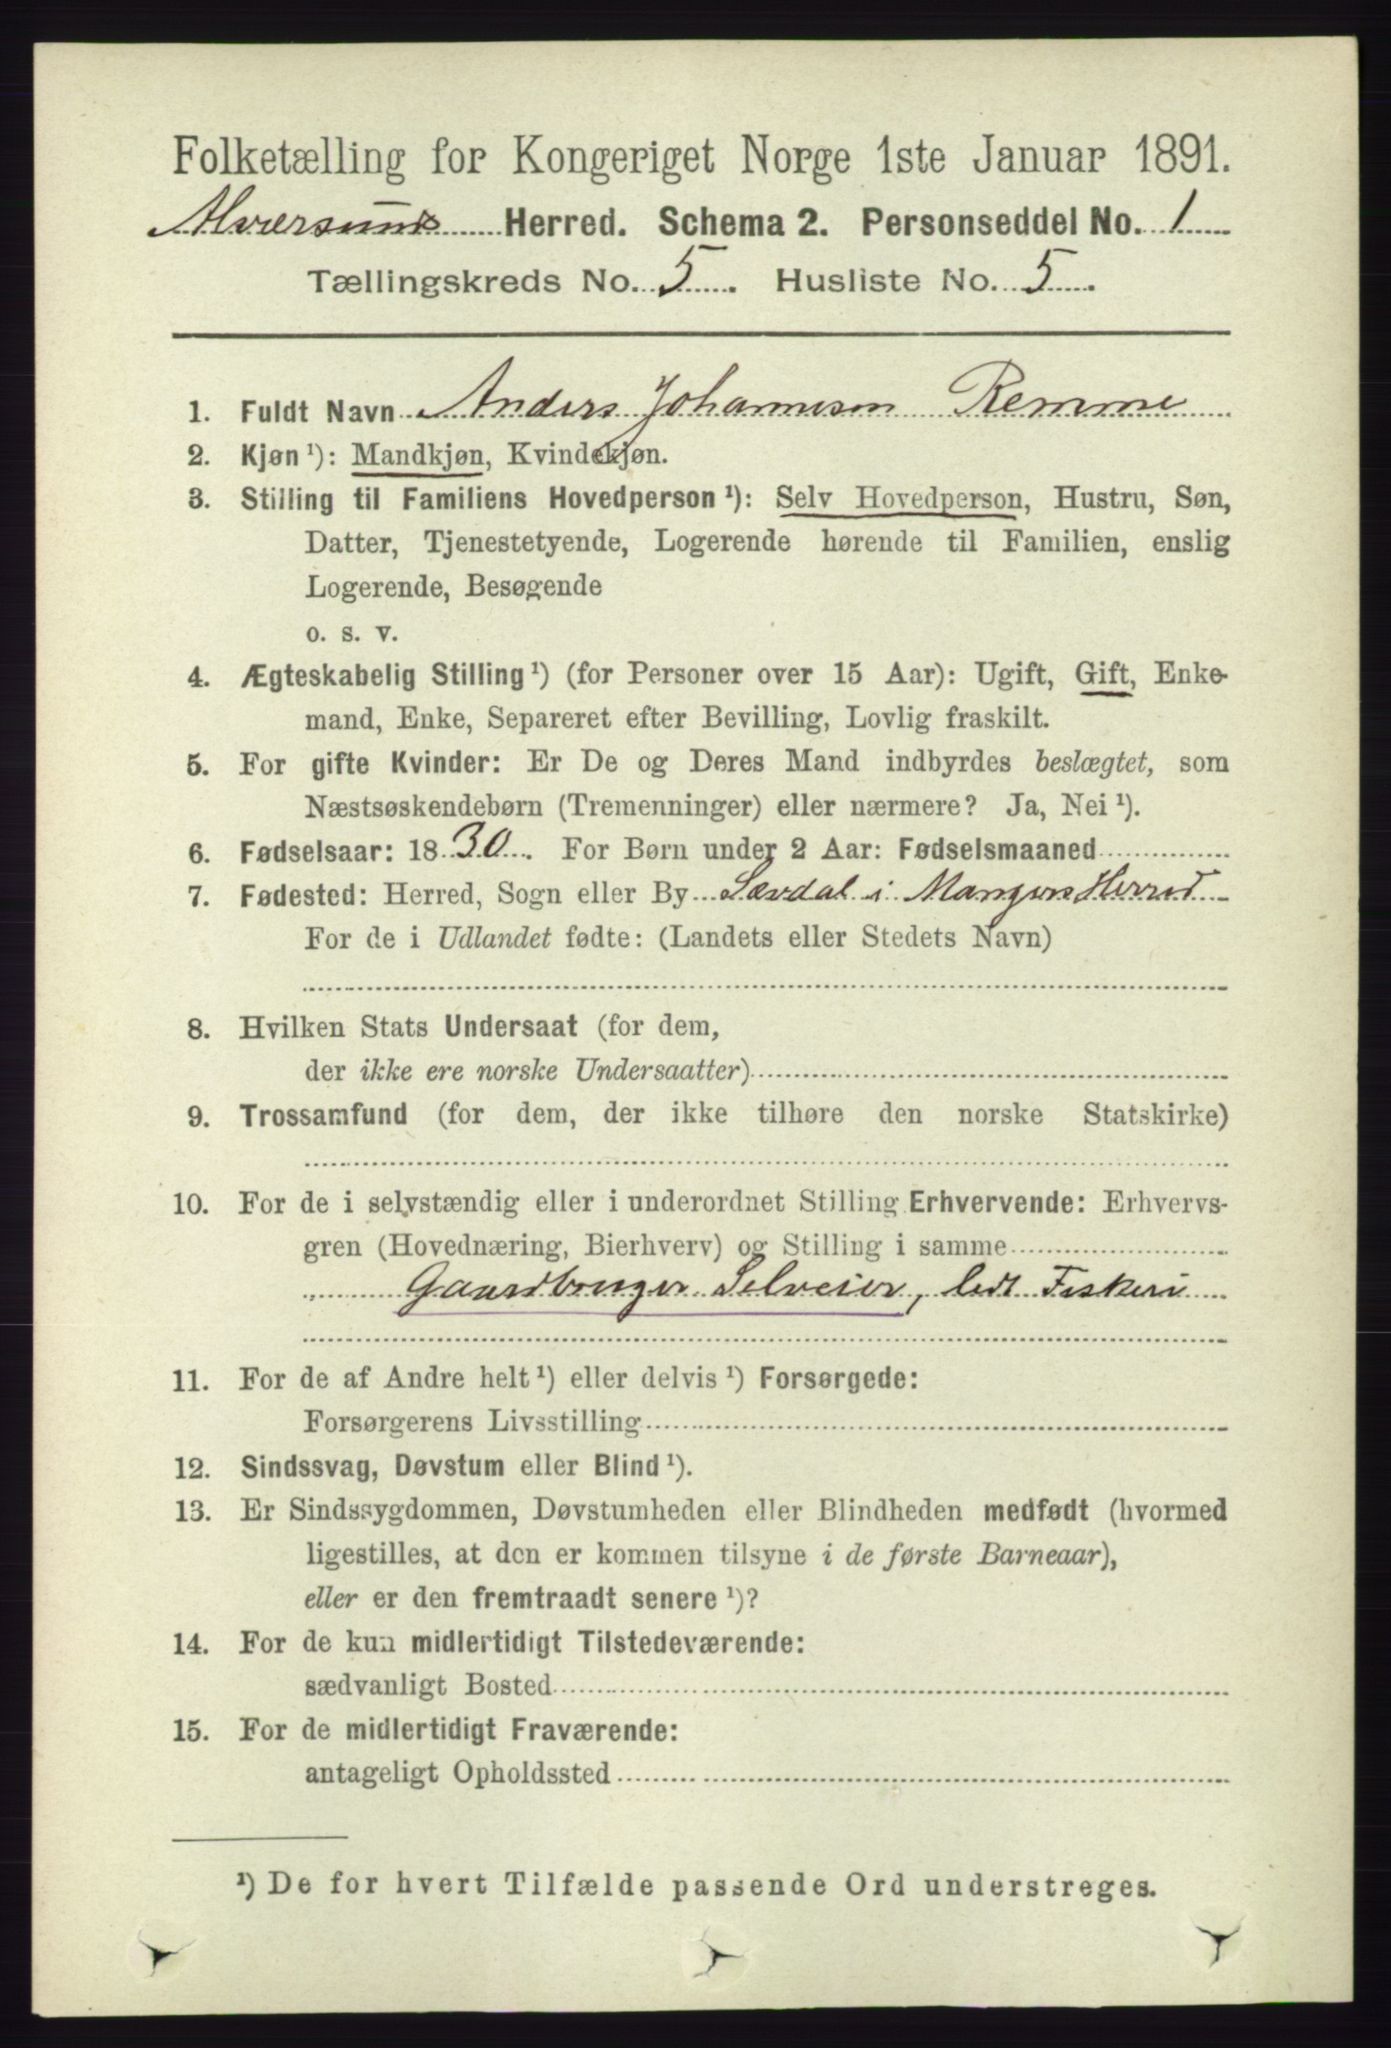 Folketælling for Kongeriget Norge 1ste Januar 1891.
Alversunds Herred. Schema 2. Personseddel No. 1
Tællingskreds No. 5. Husliste No. 5.
1. Fuldt Navn Anders Johannesen Remme
2. Kjøn ¹): Mandkjøn, Kvindekjøn.
3. Stilling til Familiens Hovedperson ¹): Selv Hovedperson, Hustru, Søn,
Datter, Tjenestetyende, Logerende hørende til Familien, enslig
Logerende, Besøgende
o. s. v.
4. Ægteskabelig Stilling ¹) (for Personer over 15 Aar): Ugift, Gift, Enke-
mand, Enke, Separeret efter Bevilling, Lovlig fraskilt.
5. For gifte Kvinder: Er De og Deres Mand indbyrdes beslægtet, som
Næstsøskendebørn (Tremenninger) eller nærmere? Ja, Nei ¹).
6. Fødselsaar: 1830. For Børn under 2 Aar: Fødselsmaaned
7. Fødested: Herred, Sogn eller By Sævdal i Mangers Herred
For de i Udlandet fødte: (Landets eller Stedets Navn)
8. Hvilken Stats Undersaat (for dem,
der ikke ere norske Undersaatter)
9. Trossamfund (for dem, der ikke tilhøre den norske Statskirke)
10. For de i selvstændig eller i underordnet Stilling Erhvervende: Erhvervs-
gren (Hovednæring, Bierhverv) og Stilling i samme
Gaardbruger Selveier, lidt Fiskeri
11. For de af Andre helt ¹) eller delvis ¹) Forsørgede:
Forsørgerens Livsstilling
12. Sindssvag, Døvstum eller Blind ¹).
13. Er Sindssygdommen, Døvstumheden eller Blindheden medfødt (hvormed
ligestilles, at den er kommen tilsyne i de første Barneaar),
eller er den fremtraadt senere ¹)?
14. For de kun midlertidigt Tilstedeværende:
sædvanligt Bosted
15. For de midlertidigt Fraværende:
antageligt Opholdssted
¹) De for hvert Tilfælde passende Ord understreges.